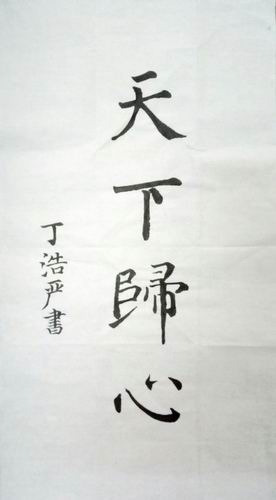 天下歸心
丁浩严書